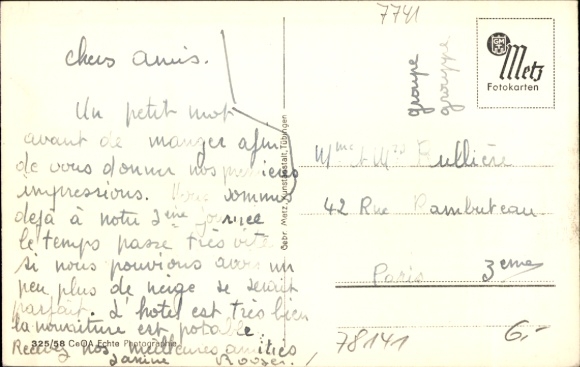 7741
chers amis.
Un petit mot
avant de manger afin
de vous donner nos premieres
impressions. Nous sommes
deja à notre 2ème journée
le temps passe très vite
si nous pouvions avoir un
peu plus de neige se serait
parfait. L'hotel est très bien
la nourriture est potable.
Recevez nos meilleures amitiés
Janine Roger.
325/58 CeOA Echte Photographie
Gebr. Metz, Kunstanstalt, Tübingen
groupe
grouppe
Metz
Fotokarten
Mme et Mr Rullière
42 Rue Rambuteau
Paris 3eme
78141
6,-